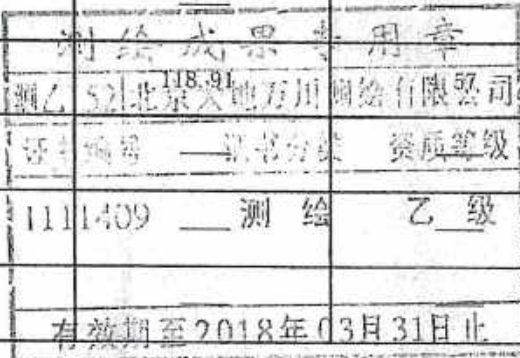 测绘成果专用章
118.91
57
北京天地万川测绘有限公司
证书编号 证书分类 资质等级
1111409 测绘 乙级
有效期至2018年03月31日止